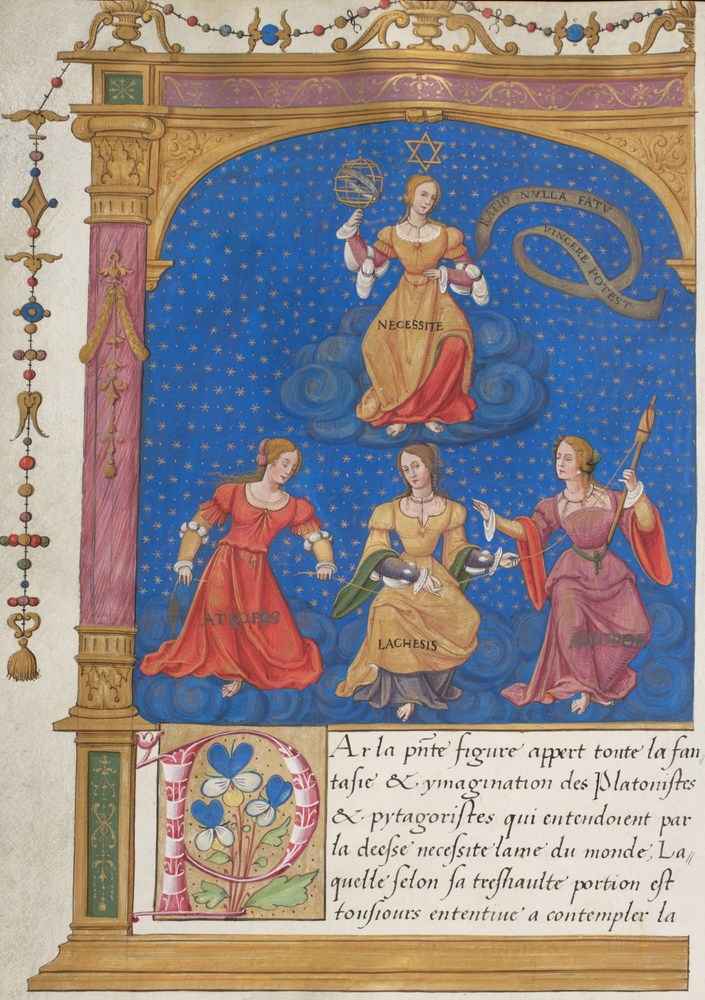 RATIO NVLLA FATV
VINCERE POTEST
NECESSITE
ATROPOS
LACHESIS
PAr la pñte figure appert toute la fan〃
tasie & ymagination des Platonistes
& pytagoristes qui entendoient par
la deesse necessite lame du monde, La〃
quelle selon sa treshaulte portion est
tousiours ententiue a contempler la